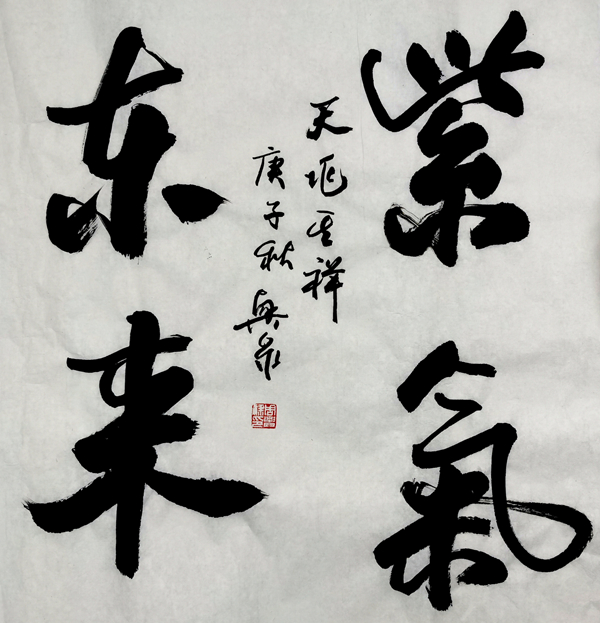 紫氣
东来
天兆吉祥
庚子秋兴泉